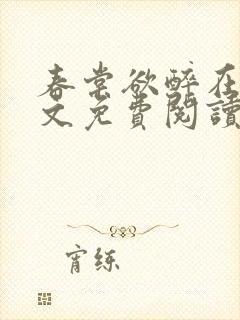 春棠欲醉在
文免費閱讀
宵练